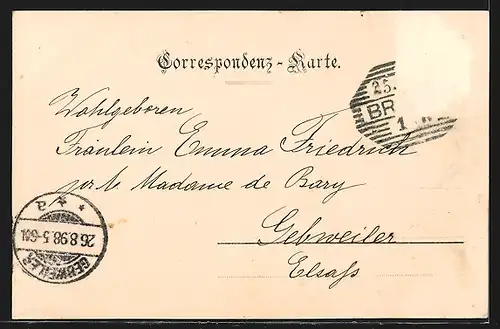 Correspondenz-Karte.
25.
BR
1
Wohlgeboren
Fräulein Emma Friedrich
Madame de Bary
Gebweiler
Elsaß
* * a
26.8.98.5-6N.
GEBWEILER